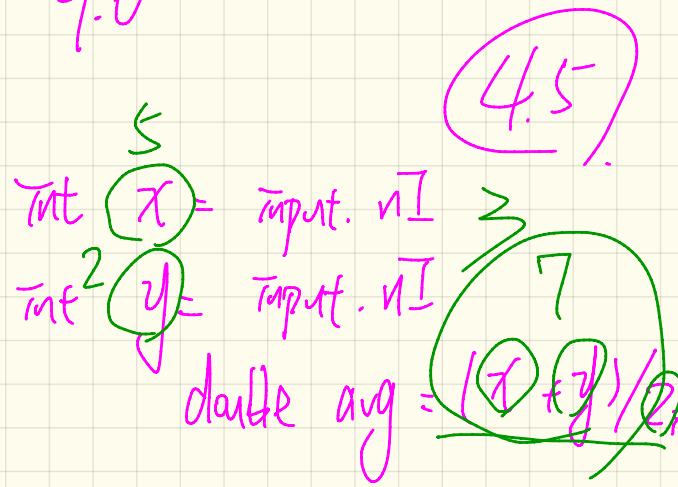 4.5
5
int x = input. nI
3
2
int y = input. nI
7
double avg = (x + y) / 2